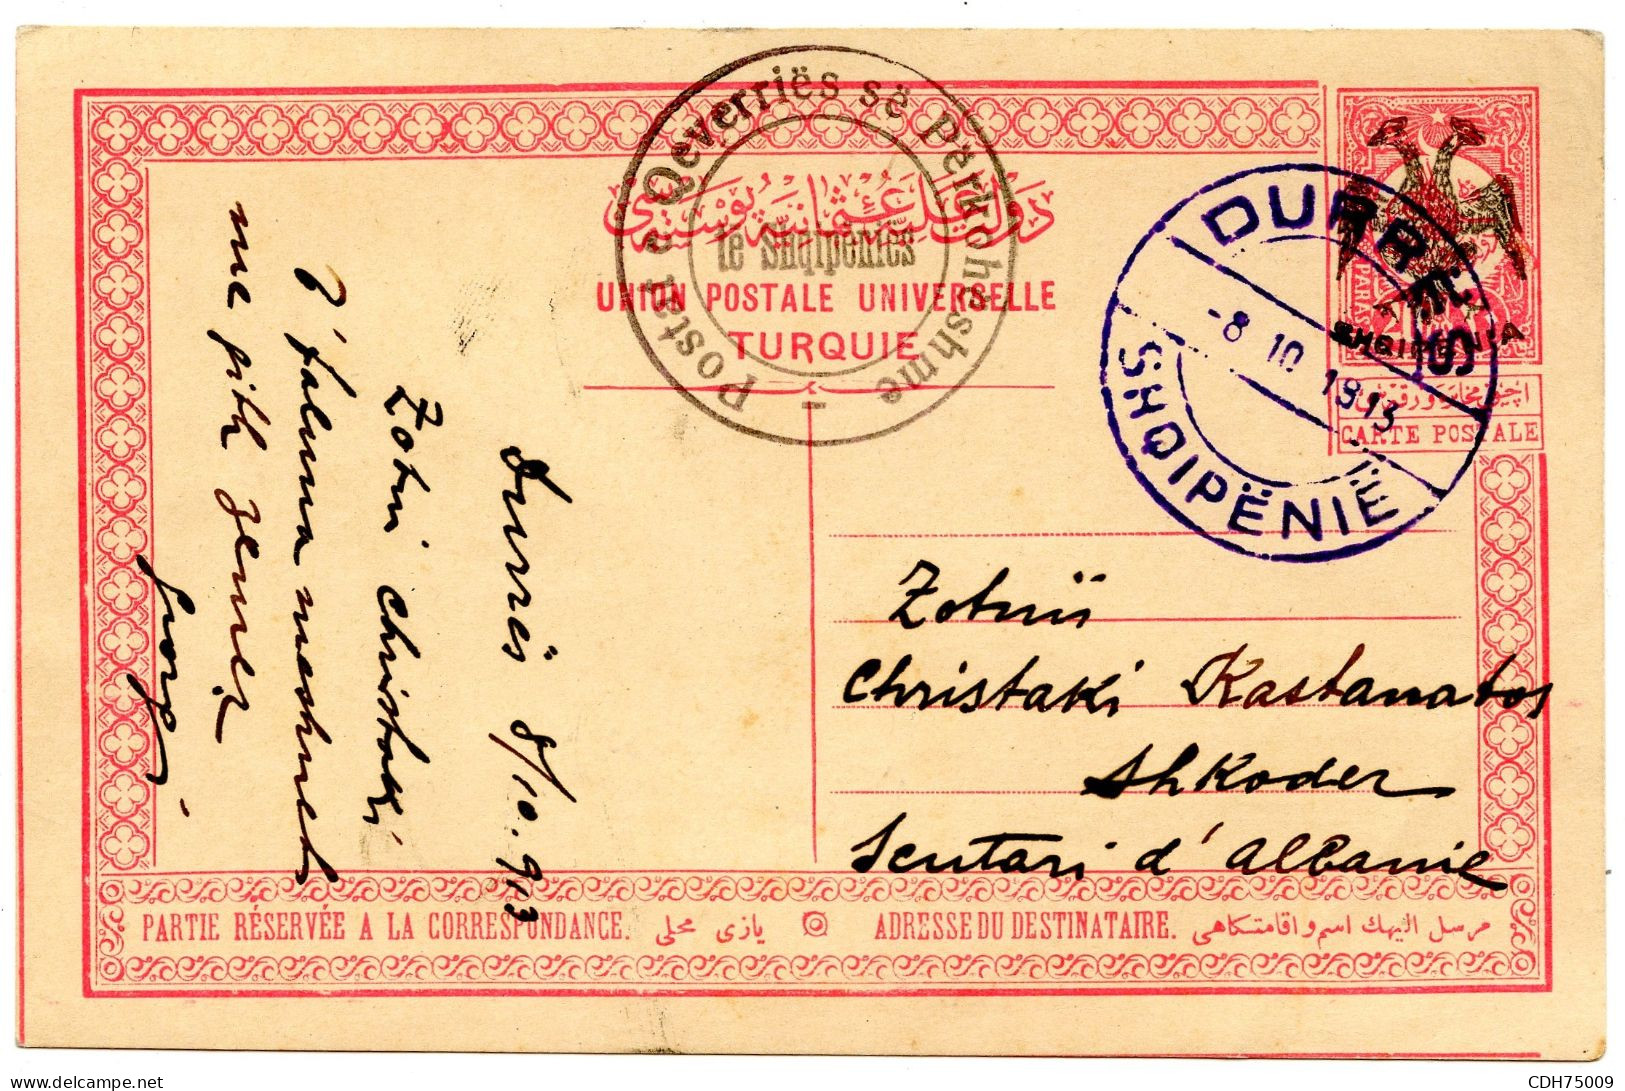 Postat e Qeverriës së Përkoheshme
te Shqipëniës
دولت عليه عثمانيه پوسته سى
UNION POSTALE UNIVERSELLE
TURQUIE
DURRËS
-8 10 1913
SHQIPËNIË
PARAS 20
SHQIPENIA
CARTE POSTALE
Durrës 8/10.913
Zotni Christaki
T' faluna mashumeh
me gith zemer
Zotnii
Christaki Kastanatos
Shkoder
Scutari d' Albanie
PARTIE RÉSERVÉE A LA CORRESPONDANCE. يازى محلى
ADRESSE DU DESTINATAIRE. مرسل اليهك اسم و اقامتكاهى
delcampe.net
CDH75009